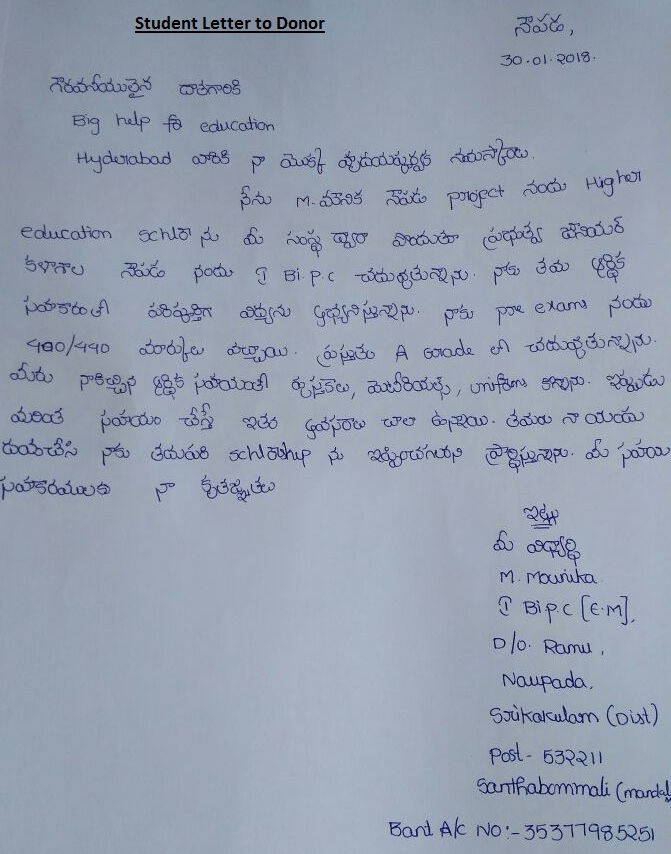 Student Letter to Donor
నౌపడ,
30.01.2018.
గౌరవనీయులైన దాతగారికి
Big help for education
Hyderabad వారికి నా యొక్క హృదయపూర్వక నమస్కారాలు.
నేను M. మౌనిక నౌపడ project నందు Higher
education schlr ను మీ సంస్థ ద్వారా పొందుతూ ప్రభుత్వ జూనియర్
కళాశాల నౌపడ నందు I Bi.P.C చదువుతున్నాను. నాకు తమ ఆర్థిక
సహకారంతో విద్యను అభ్యసిస్తున్నాను. నాకు pre exams నందు
400/440 మార్కులు వచ్చాయి. ప్రస్తుతం A Grade లో చదువుతున్నాను.
మీరు నాకిచ్చిన ఆర్థిక సహాయంతో పుస్తకాలు, మెటీరియల్స్, uniforms కొన్నాను. ఇప్పుడు
మరింత సహాయం చేస్తే ఇతర అవసరాలు చాలా ఉన్నాయి. తమరు నా యందు
దయచేసి నాకు తదుపరి schlorship ను ఇప్పించగలరని ప్రార్థిస్తున్నాను. మీ సహాయ
సహకారములకు నా కృతజ్ఞతలు
ఇట్లు
మీ విద్యార్థి
M. Mounika
I Bi.P.C [E.M],
D/o. Ramu,
Naupada,
Srikakulam (Dist)
Post - 532211
Santhabommali (mandal)
Bank A/c No:- 35377985251